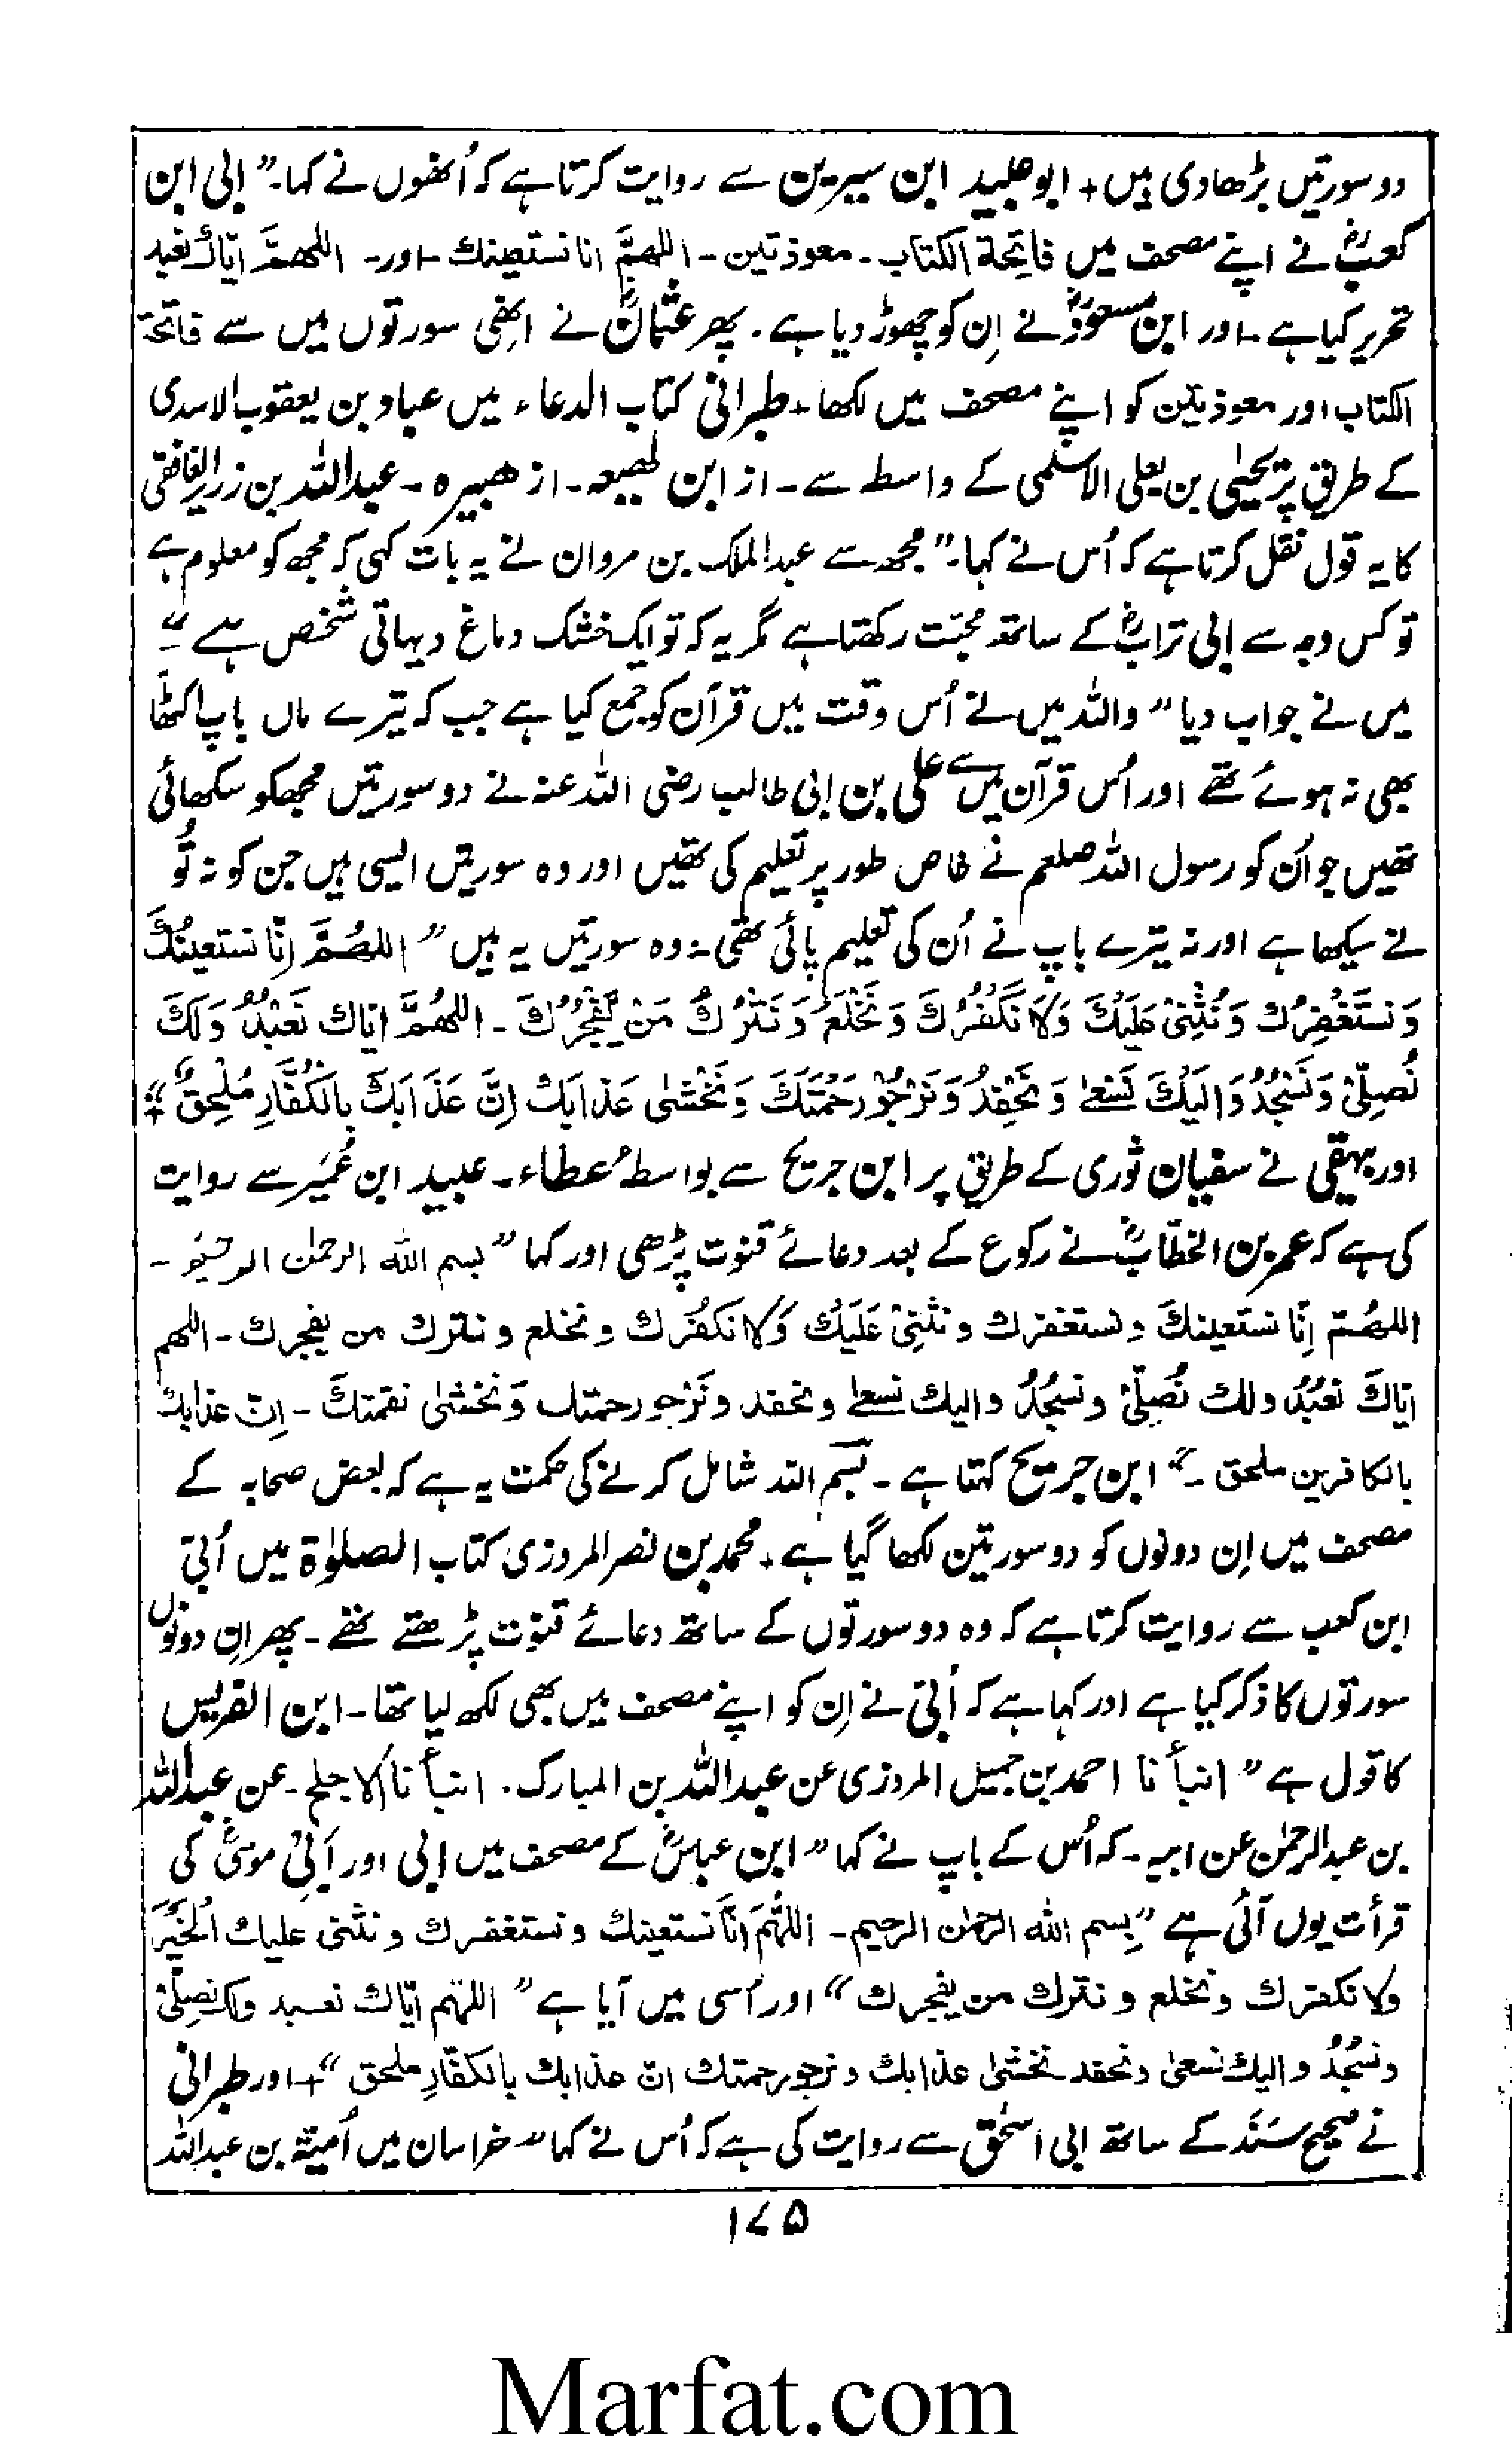 دو سورتیں بڑھا دی ہیں + ابو عبید ابن سیرین سے روایت کرتا ہے کہ اُنھوں نے کہا۔" ابی ابن
کعبؓ نے اپنے مصحف میں فاتحۃ الکتاب۔ معوذتین۔ اللھمَّ انا نستعینك۔ اور۔ اللھمَّ ایّاك نعبد
تحریر کیا ہے۔ اور ابن مسعودؓ نے اِن کو چھوڑ دیا ہے۔ پھر عثمانؓ نے انھی سورتوں میں سے فاتحۃ
الکتاب اور معوذتین کو اپنے مصحف میں لکھا + طبرانی کتاب الدعاء میں عباد بن یعقوب الاسدی
کے طریق پر یحییٰ بن یعلی الاسلمی کے واسطہ سے۔ از ابن لھیعہ۔ از ھبیرہ۔ عبداللہ بن زریر الغافقی
کا یہ قول نقل کرتا ہے کہ اُس نے کہا۔" مجھ سے عبدالملک بن مروان نے یہ بات کہی کہ مجھ کو معلوم ہے
تو کس وجہ سے ابی ترابؓ کے ساتھ محبّت رکھتا ہے مگر یہ کہ تو ایک خشک دماغ دیہاتی شخص ہے"۔
میں نے جواب دیا" واللہ میں نے اُس وقت میں قرآن کو جمع کیا ہے جب کہ تیرے ماں باپ اکٹھا
بھی نہ ہوئے تھے اور اُس قرآن میں سے علی بن ابی طالب رضی اللہ عنہ نے دو سورتیں مجھکو سکھائی
تھیں جو اُن کو رسول اللہ صلعم نے خاص طور پر تعلیم کی تھیں اور وہ سورتیں ایسی ہیں جن کو نہ تُو
نے سیکھا ہے اور نہ تیرے باپ نے اُن کی تعلیم پائی تھی۔ وہ سورتیں یہ ہیں" اللھُمَّ اِنَّا نستعینُكَ
وَ نستَغْفِرُك وَ نُثْنِیْ عَلَیْكَ وَلَا نَكْفُرُكَ وَ نَخْلَعُ وَ نَتْرُكُ مَنْ یَّفْجُرُكَ۔ اللھُمَّ ایاك نَعْبُدُ وَلَكَ
نُصلِّیْ وَ نَسْجُدُ وَ اِلَیْكَ نَسْعٰے وَ نَحْفِدُ وَ نَرْجُوْ رَحْمَتَكَ وَ نَخْشٰی عَذابَكَ اِنَّ عَذَابَكَ بِالْكُفَّارِ مُلْحِقٌ" +
اور بیہقی نے سفیان ثوری کے طریق پر ابن جریج سے بواسطہٴ عطاء۔ عبید ابن عُمَیر سے روایت
کی ہے کہ عمر بن الخطّابؓ نے رکوع کے بعد دعائے قنوت پڑھی اور کہا" بسم اللہ الرحمٰن الرحیم۔
اللھُمّ اِنَّا نستعینكَ و نستغفرك و نثنِیْ عَلَیْكَ وَلا نكفُرك و نخلع و نترك من یفجرك۔ اللھم
ایّاكَ نعبُدُ ولك نُصلِّیْ و نسجُدُ والیك نسعٰے و نحفد و نَرْجو رحمتك وَ نخشٰی نقمتكَ۔ اِنّ عذابك
بالكافرین ملحق۔" ابن جریج کہتا ہے۔ بسم اللہ شامل کرنے کی حکمت یہ ہے کہ بعض صحابہ کے
مصحف میں اِن دونوں کو دو سورتیں لکھا گیا ہے + محمد بن نصر المروزی کتاب الصلوٰۃ میں اُبیّ
ابن کعب سے روایت کرتا ہے کہ وہ دو سورتوں کے ساتھ دعائے قنوت پڑھتے تھے۔ پھر اِن دونوں
سورتوں کا ذکر کیا ہے اور کہا ہے کہ اُبیّ نے اِن کو اپنے مصحف میں بھی لکھ لیا تھا۔ ابن الضریس
کا قول ہے" انبأنا احمد بن جمیل المروزی عن عبداللہ بن المبارک۔ انبأنا الاجلح۔ عن عبداللہ
بن عبدالرحمٰن عن ابیہ۔ کہ اُس کے باپ نے کہا" ابن عباسؓ کے مصحف میں ابی اور اَبِیْ موسیؓ کی
قرأت یوں آئی ہے" بِسم اللہ الرحمٰن الرحیم۔ اللھُمّ اِنَّا نستعینك و نستغفرك و نثنی علیك الْخَیْرَ
ولا نكفرك و نخلع و نترك من یفجرك" اور اُسی میں آیا ہے" اللھُم ایّاك نعبد ولك نصلّیْ
و نسجُدُ والیك نسعی و نحفد نخشٰی عذابك و نرجو رحمتك انّ عذابك بالكفّارِ ملحق" + اور طبرانی
نے صحیح سَنَد کے ساتھ ابی اسحٰق سے روایت کی ہے کہ اُس نے کہا" خراسان میں اُمیّۃ بن عبداللہ
۱۷۵
Marfat.com